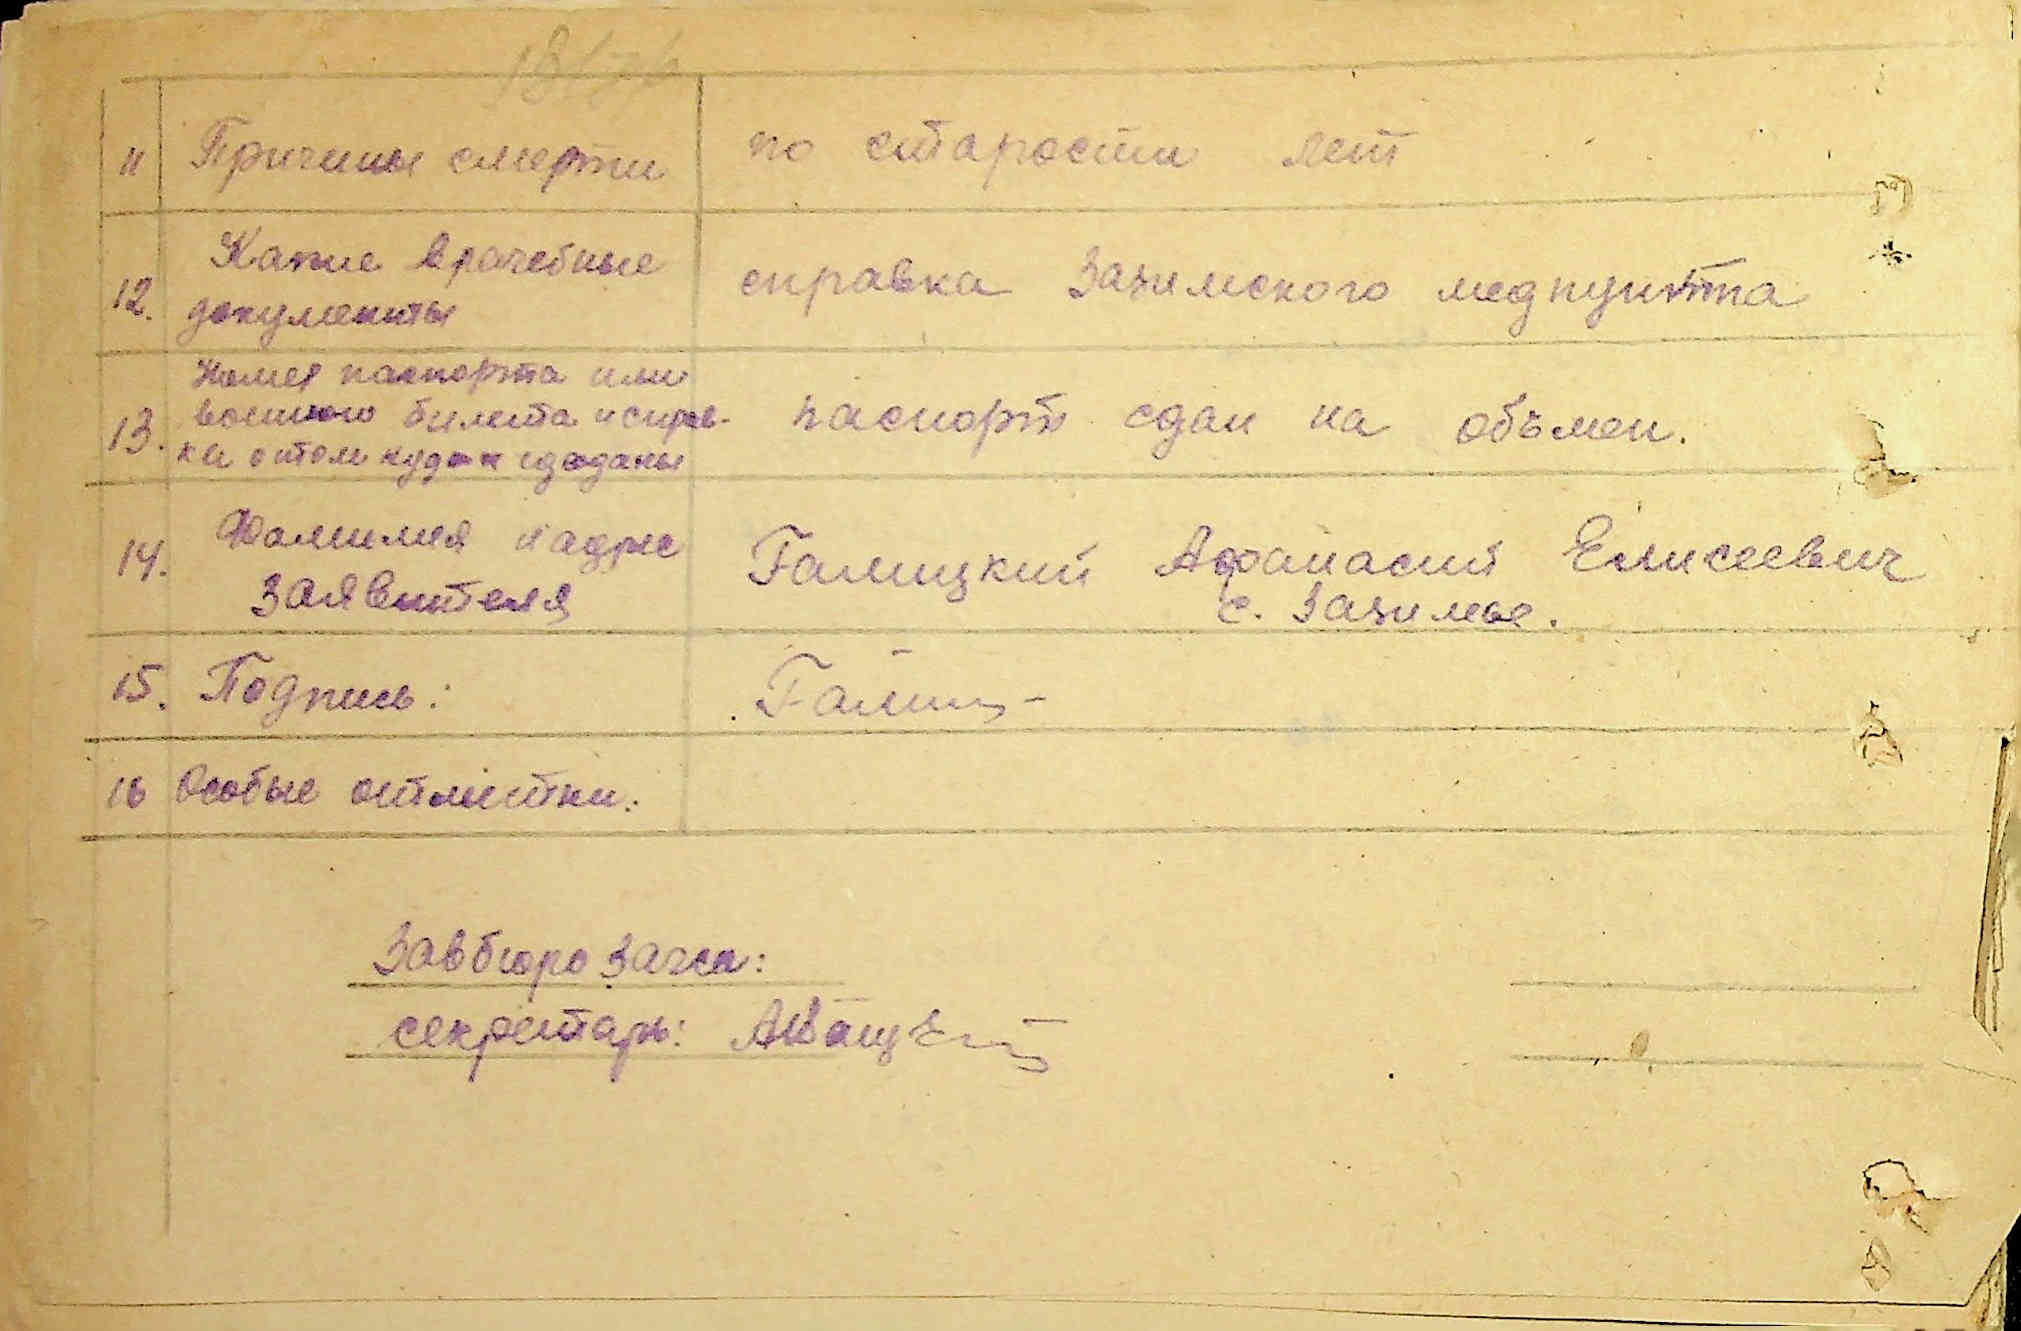 11 Причины смерти по старости лет
12. Какие врачебные документы
справка Зазимского медпункта
13. Номер паспорта или
военного билета и справ-
ка о том куда сданы
паспорт сдан на объмен.
14. Фамилия и адрес
заявителя
Галицкий Афанасий Елисеевич
с. Зазимье.
15. Подпись: Галиц-
16 Особые отметки:
Завбюро Загса:
секретарь: